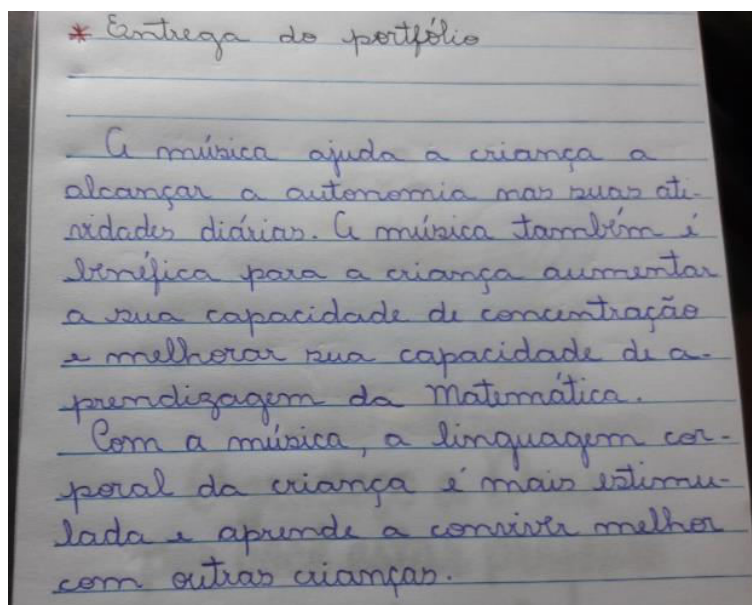 * Entrega do portfólio
A música ajuda a criança a
alcançar a autonomia nas suas ati-
vidades diárias. A música também é
benéfica para a criança aumentar
a sua capacidade de concentração
e melhorar sua capacidade de a-
prendizagem da Matemática.
Com a música, a linguagem cor-
poral da criança é mais estimu-
lada e aprende a conviver melhor
com outras crianças.